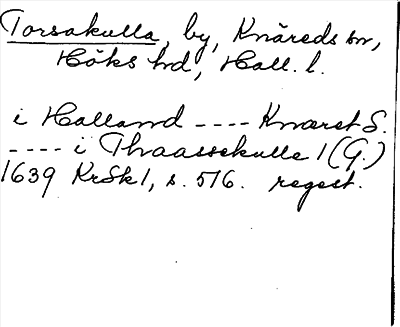 Torsakulla, by, Knäreds sn,
Höks hd, Hall. l.
i Halland ---- Knæret S.
---- i Thaassekulle 1 (G.)
1639 KrSk 1, s. 516. regest.